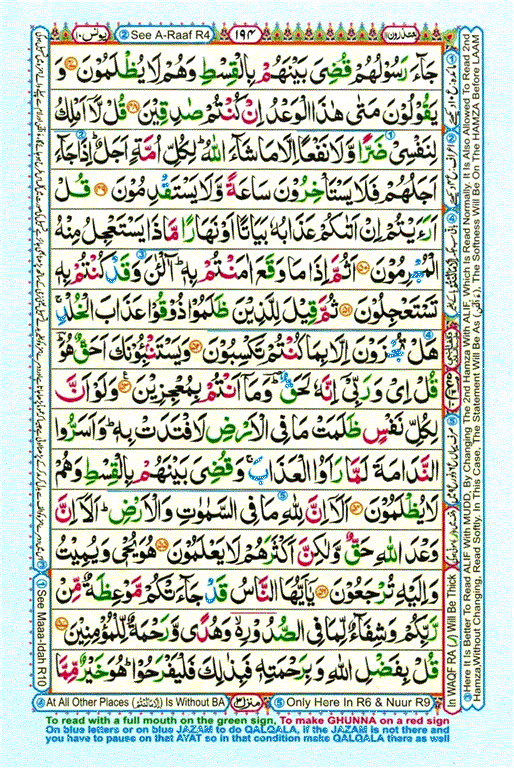 یونس ۱۰
② See A-Raaf R4
۱۹۴
یعتذرون ۱۱
جَآءَ رَسُوْلُهُمْ قُضِىَ بَيْنَهُمْ بِالْقِسْطِ وَهُمْ لَا يُظْلَمُوْنَ ۝۴۷ وَ
يَقُوْلُوْنَ مَتٰى هٰذَا الْوَعْدُ اِنْ كُنْتُمْ صٰدِقِيْنَ ۝۴۸ قُلْ لَّاۤ اَمْلِكُ
لِنَفْسِىْ ضَرًّا وَّلَا نَفْعًا اِلَّا مَا شَآءَ اللّٰهُ ؕ لِكُلِّ اُمَّةٍ اَجَلٌ ؕ اِذَا جَآءَ
اَجَلُهُمْ فَلَا يَسْتَاْخِرُوْنَ سَاعَةً وَّلَا يَسْتَقْدِمُوْنَ ۝۴۹ قُلْ
اَرَءَيْتُمْ اِنْ اَتٰىكُمْ عَذَابُهٗ بَيَاتًا اَوْ نَهَارًا مَّاذَا يَسْتَعْجِلُ مِنْهُ
الْمُجْرِمُوْنَ ۝۵۰ اَثُمَّ اِذَا مَا وَقَعَ اٰمَنْتُمْ بِهٖ ؕ آٰلْـٰٔنَ وَقَدْ كُنْتُمْ بِهٖ
تَسْتَعْجِلُوْنَ ۝۵۱ ثُمَّ قِيْلَ لِلَّذِيْنَ ظَلَمُوْا ذُوْقُوْا عَذَابَ الْخُلْدِ ۚ
هَلْ تُجْزَوْنَ اِلَّا بِمَا كُنْتُمْ تَكْسِبُوْنَ ۝۵۲ وَيَسْتَنْۢبِـُٔوْنَكَ اَحَقٌّ هُوَ ؕ
قُلْ اِىْ وَرَبِّىْۤ اِنَّهٗ لَحَقٌّ ؕ وَمَاۤ اَنْتُمْ بِمُعْجِزِيْنَ ۝۵۳ وَلَوْ اَنَّ
لِكُلِّ نَفْسٍ ظَلَمَتْ مَا فِى الْاَرْضِ لَافْتَدَتْ بِهٖ ؕ وَاَسَرُّوا
النَّدَامَةَ لَمَّا رَاَوُا الْعَذَابَ ۚ وَقُضِىَ بَيْنَهُمْ بِالْقِسْطِ وَهُمْ
لَا يُظْلَمُوْنَ ۝۵۴ اَلَاۤ اِنَّ لِلّٰهِ مَا فِى السَّمٰوٰتِ وَالْاَرْضِ ؕ اَلَاۤ اِنَّ
وَعْدَ اللّٰهِ حَقٌّ وَّلٰكِنَّ اَكْثَرَهُمْ لَا يَعْلَمُوْنَ ۝۵۵ هُوَ يُحْىٖ وَيُمِيْتُ
وَاِلَيْهِ تُرْجَعُوْنَ ۝۵۶ يٰۤاَيُّهَا النَّاسُ قَدْ جَآءَتْكُمْ مَّوْعِظَةٌ مِّنْ
رَّبِّكُمْ وَشِفَآءٌ لِّمَا فِى الصُّدُوْرِ ۙ وَهُدًى وَّرَحْمَةٌ لِّلْمُؤْمِنِيْنَ ۝۵۷
قُلْ بِفَضْلِ اللّٰهِ وَبِرَحْمَتِهٖ فَبِذٰلِكَ فَلْيَفْرَحُوْا ؕ هُوَ خَيْرٌ مِّمَّا
① See Maaa-Idah R10
In WAQF RA (ر) Will Be Thick
③ Here It Is Better To Read ALIF With MUDD, By Changing The 2nd Hamza With ALIF, Which Is Read Normally. It Is Also Allowed To Read 2nd
Hamza, Without Changing, Read Softly. In This Case, The Statement Will Be As, The Softness Will Be On The HAMZA Before LAAM
④ At All Other Places Is Without BA
منزل ۳
⑤ Only Here In R6 & Nuur R9
To read with a full mouth on the green sign, To make GHUNNA on a red sign
On blue letters or on blue JAZAM to do QALQALA, If the JAZAM is not there and
you have to pause on that AYAT so in that condition make QALQALA there as well